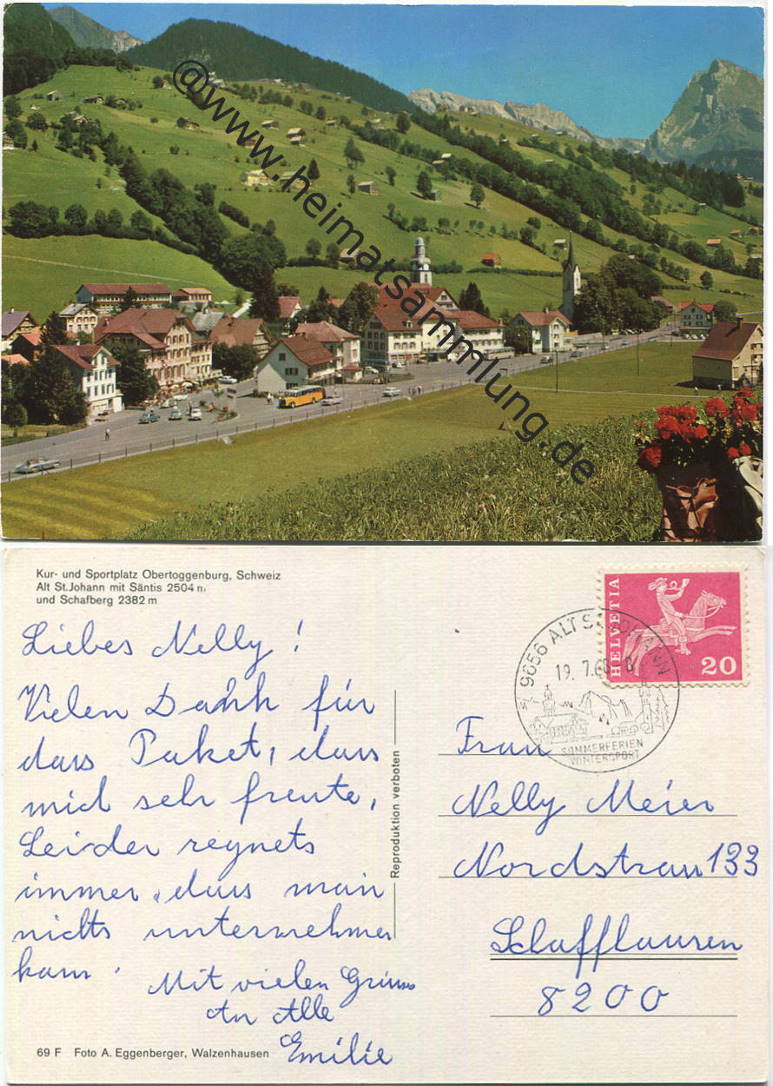 @www.heimatsammlung.de
Kur- und Sportplatz Obertoggenburg, Schweiz
Alt St. Johann mit Säntis 2504 m
und Schafberg 2382 m
Liebes Nelly !
Vielen Dank für
das Paket, dass
mich sehr freute,
Leider regnets
immer, dass man
nichts unternehmen
kann.
Mit vielen Grüssen
An Alle
Emilie
69 F Foto A. Eggenberger, Walzenhausen
Reproduktion verboten
HELVETIA
20
9656 ALT ST. JOHANN
19. 7. 6
SOMMERFERIEN
WINTERSPORT
Frau
Nelly Meier
Nordstrass 133
Schaffhausen
8200